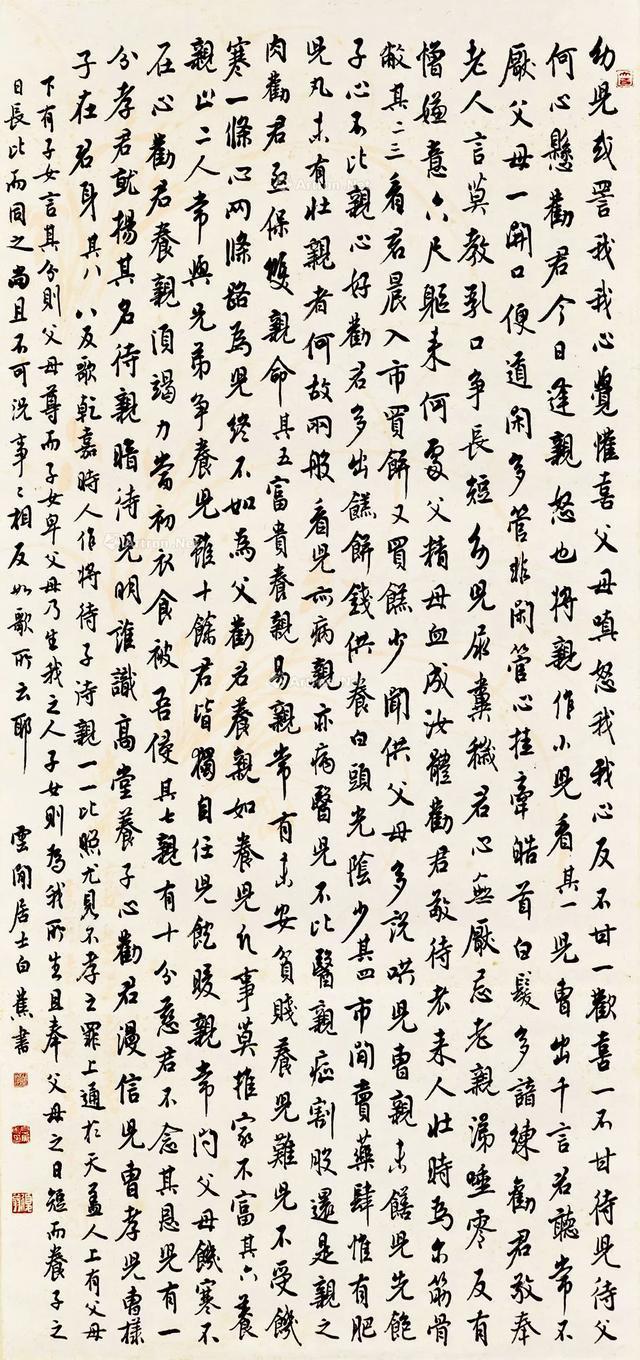 幼兒或詈我我心覺懽喜父母嗔怒我我心反不甘一歡喜一不甘待兒待父
何心懸勸君今日逢親怒也將親作小兒看其一兒曹出千言君聽常不
厭父母一開口便道閑多管非閑管心挂牽皓首白髮多諳練勸君敬奉
老人言莫教乳口爭長短幼兒尿糞穢君心無厭忌老親涕唾零反有
憎嫌意六尺軀來何處父精母血成汝體勸君敬待老來人壯時爲尔筋骨
敝其二三看君晨入市買餅又買餻少聞供父母多說哄兒曹親未饍兒先飽
子心不比親心好勸君多出餻餅錢供養白頭光陰少其四市間賣藥肆惟有肥
兒丸未有壯親者何故兩般看兒亦病親亦病醫兒不比醫親症割股還是親之
肉勸君亟保雙親命其五富貴養親易親常有未安貧賤養兒難兒不受饑
寒一條心兩條路爲兒終不如爲父勸君養親如養兒凡事莫推家不富其六養
親止二人常與兄弟爭養兒雖十餘君皆獨自任兒飽暖親常問父母饑寒不
在心勸君養親須竭力當初衣食被吾侵其七親有十分慈君不念其恩兒有一
分孝君就揚其名待親暗待兒明誰識高堂養子心勸君漫信兒曹孝兒曹樣
子在君身其八八反歌乾嘉時人作將待子待親一一比照尤見不孝之罪上通於天蓋人上有父母
下有子女言其分則父母尊而子女卑父母乃生我之人子女則爲我所生且奉父母之日短而養子之
日長比而同之尚且不可況事々相反如歌所云耶雲間居士白蕉書